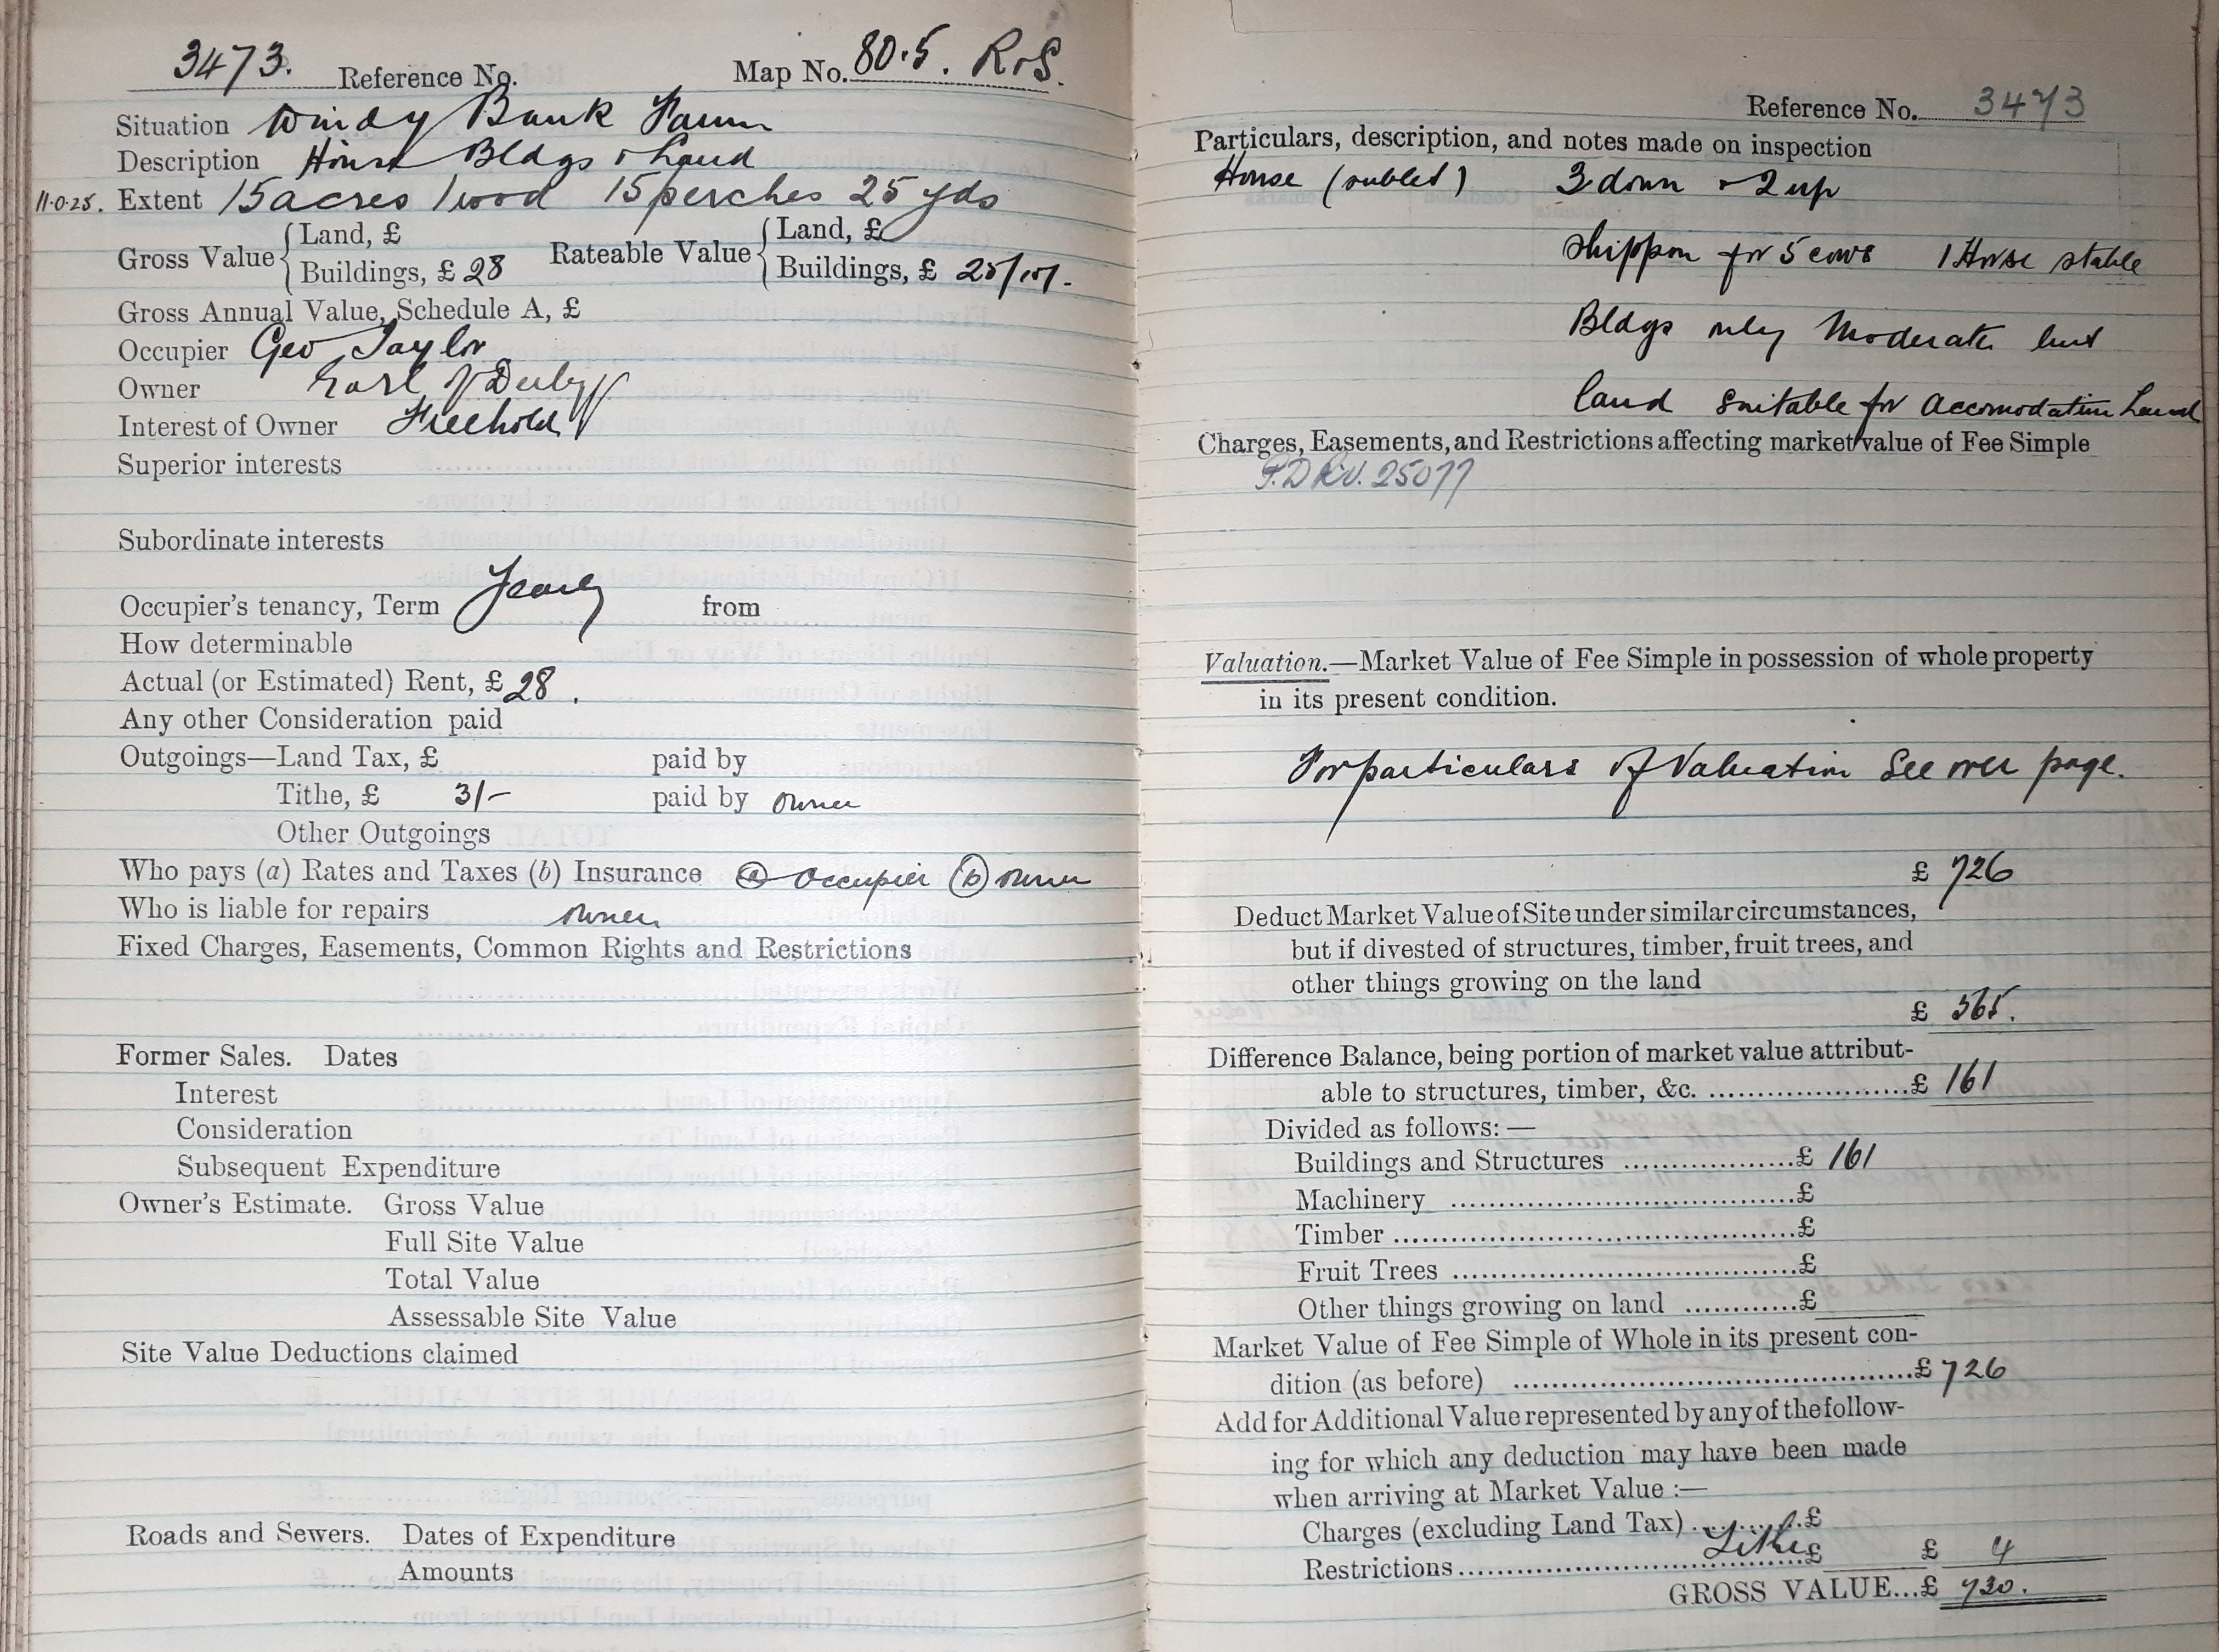 3473. Reference No. Map No. 80.5. R.S.
Situation Windy Bank Farm
Description House Bldgs & Land
11.0.25. Extent 15 acres 1 rood 15 perches 25 yds
Gross Value { Land, £ Rateable Value { Land, £
Buildings, £ 28 Buildings, £ 25/15/.
Gross Annual Value, Schedule A, £
Occupier Geo Taylor
Owner Earl of Derby
Interest of Owner Freehold
Superior interests
Subordinate interests
Occupier's tenancy, Term Yearly from
How determinable
Actual (or Estimated) Rent, £ 28.
Any other Consideration paid
Outgoings—Land Tax, £ paid by
Tithe, £ 3/- paid by owner
Other Outgoings
Who pays (a) Rates and Taxes (b) Insurance (a) Occupier (b) owner
Who is liable for repairs owner
Fixed Charges, Easements, Common Rights and Restrictions
Former Sales. Dates
Interest
Consideration
Subsequent Expenditure
Owner's Estimate. Gross Value
Full Site Value
Total Value
Assessable Site Value
Site Value Deductions claimed
Roads and Sewers. Dates of Expenditure
Amounts
Reference No. 3473
Particulars, description, and notes made on inspection
House (sublet) 3 down & 2 up
Shippon for 5 cows 1 Horse stable
Bldgs only Moderate but
land suitable for Accomodation Land
Charges, Easements, and Restrictions affecting market value of Fee Simple
25077
Valuation.—Market Value of Fee Simple in possession of whole property
in its present condition.
For particulars of Valuation See over page.
£ 726
Deduct Market Value of Site under similar circumstances,
but if divested of structures, timber, fruit trees, and
other things growing on the land
£ 565.
Difference Balance, being portion of market value attribut-
able to structures, timber, &c. £ 161
Divided as follows:—
Buildings and Structures £ 161
Machinery £
Timber £
Fruit Trees £
Other things growing on land £
Market Value of Fee Simple of Whole in its present con-
dition (as before) £ 726
Add for Additional Value represented by any of the follow-
ing for which any deduction may have been made
when arriving at Market Value :—
Charges (excluding Land Tax) £
Restrictions Tithe £ £ 4
GROSS VALUE...£ 730.